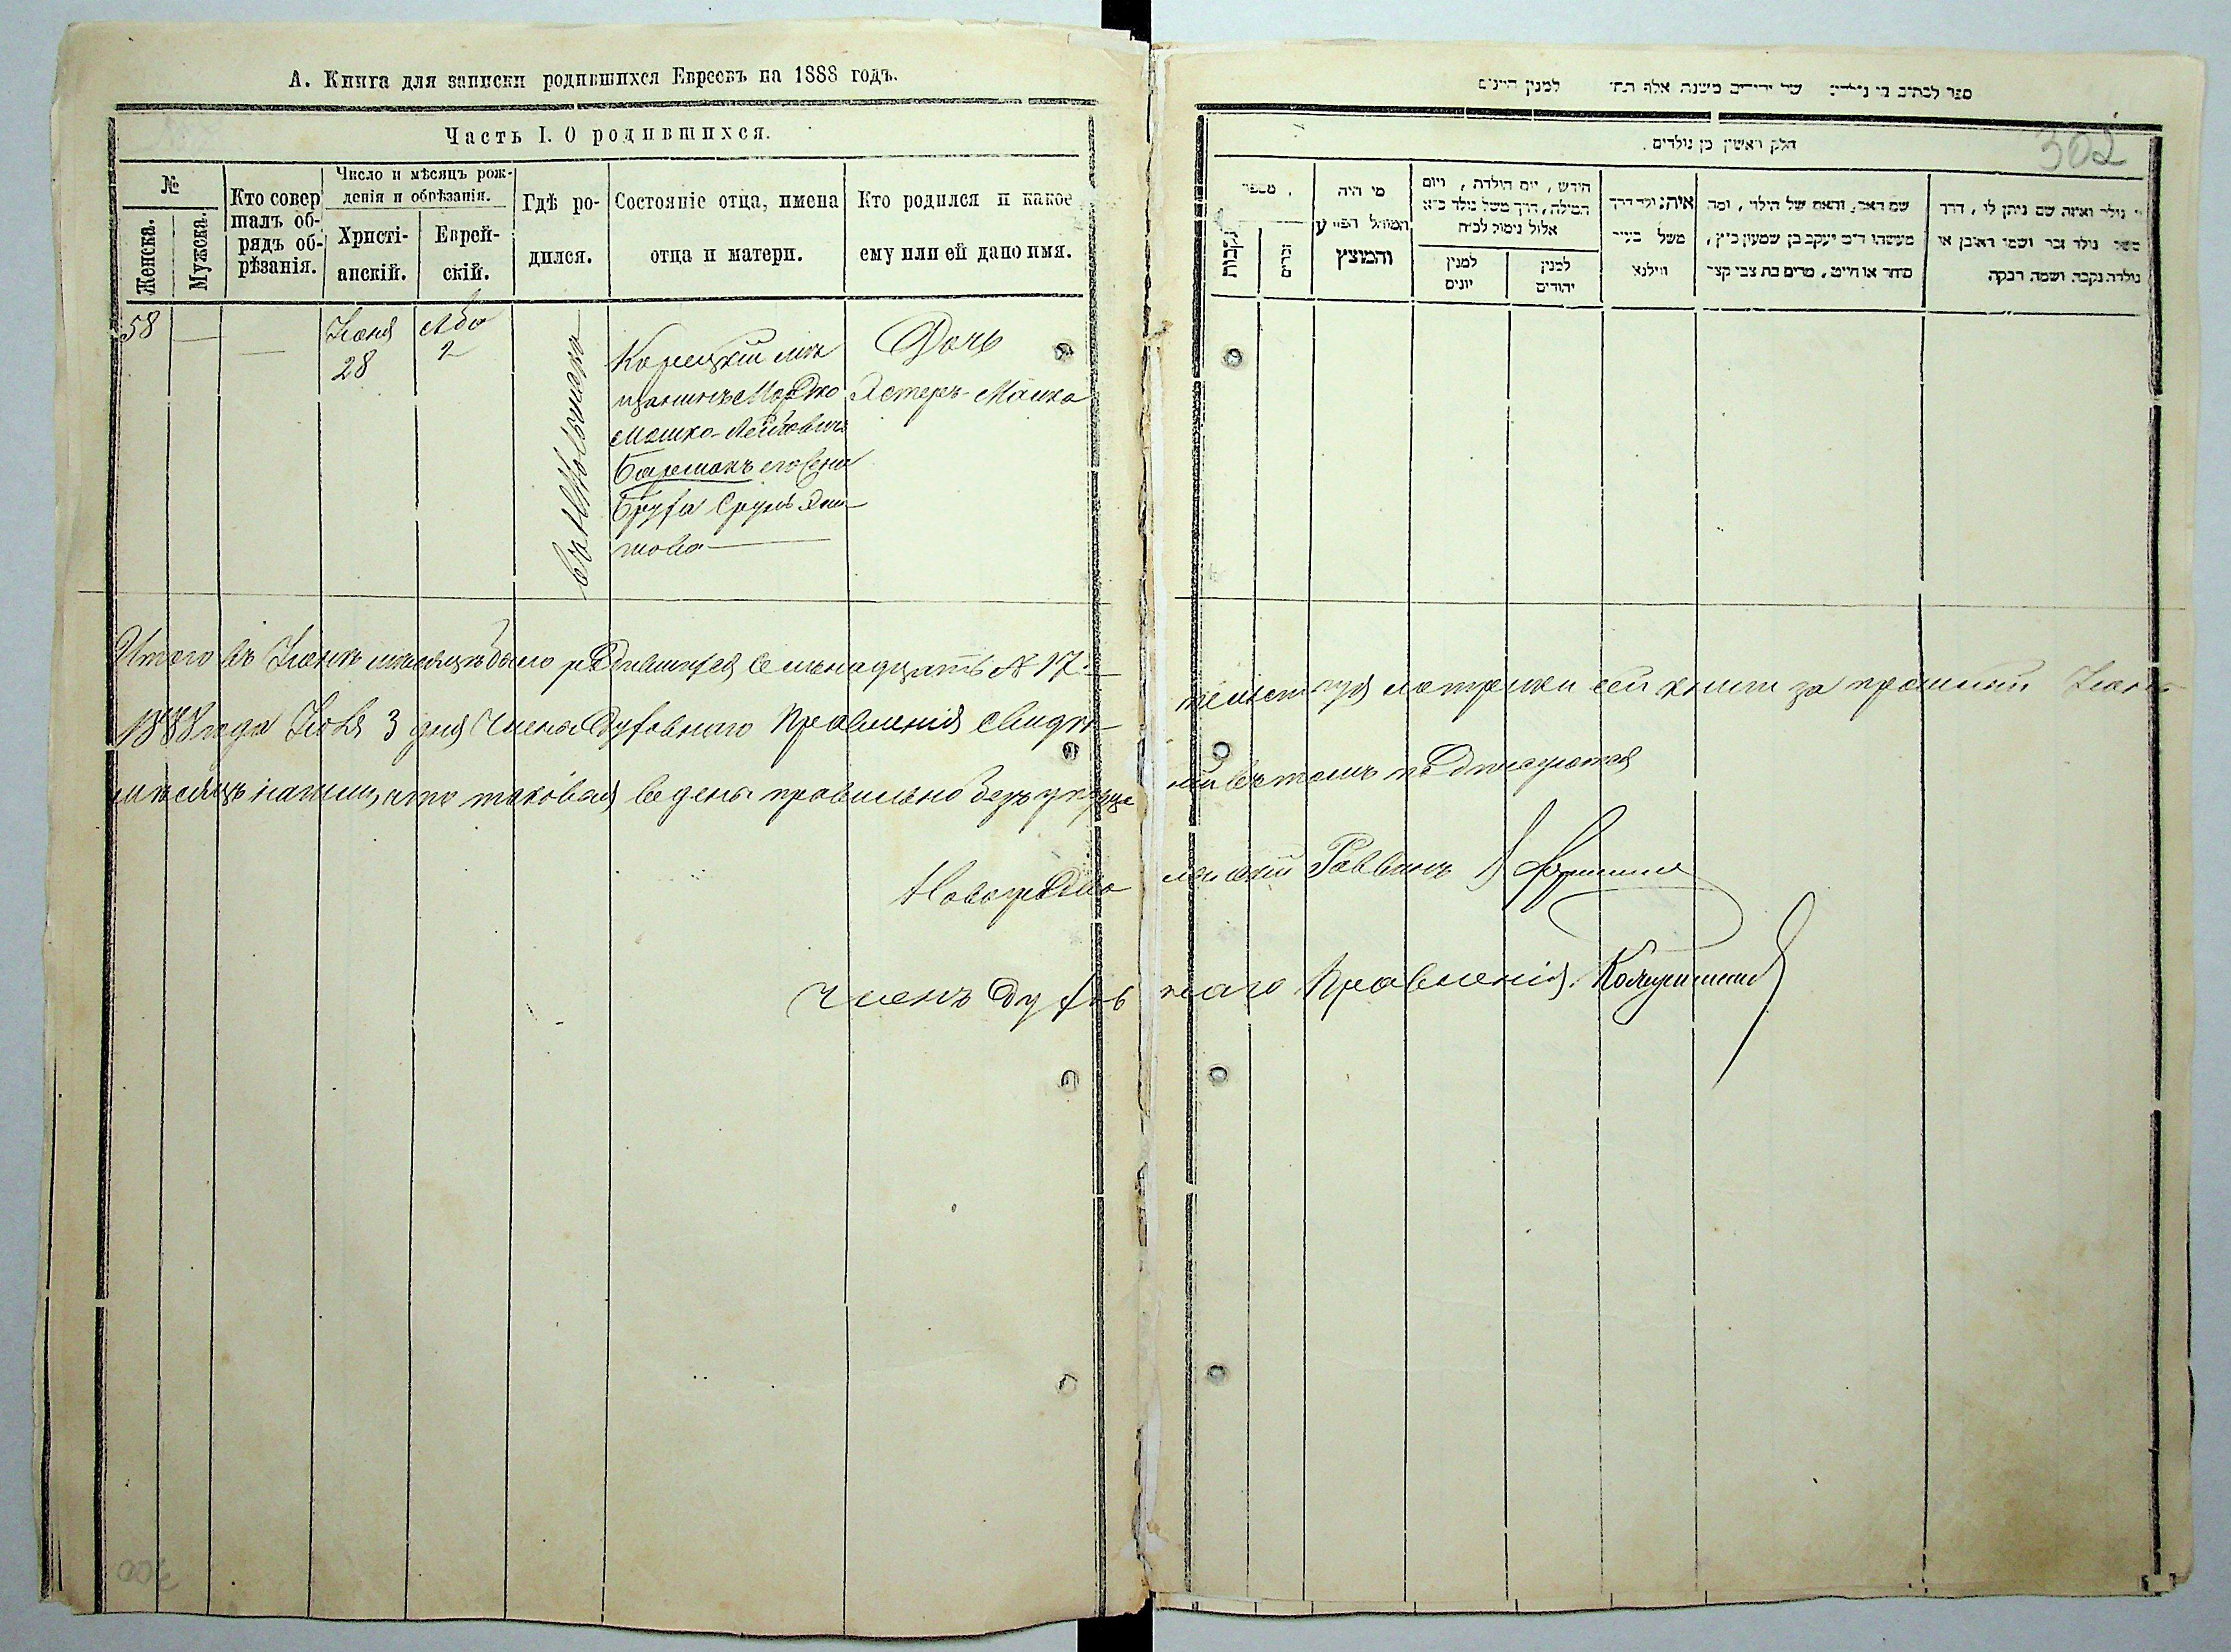 А. Книга для записки родившихся Евреевъ на 1888 годъ.
Часть I. О родившихся.
№
Женска.
Мужска.
Кто совер
шалъ об-
рядъ об-
рѣзанія.
Число и мѣсяцъ рож-
денія и обрѣзанія.
Христі-
анскій.
Еврей-
скій.
Гдѣ ро-
дился.
Состояніе отца, имена
отца и матери.
Кто родился и какое
ему или ей дано имя.
58
Іюня
28
Ава
2
Корецкій мѣ
щанинъ Мордко
Мошко-Лейбовичъ
его жена
Бруха Сруль
това
Дочь
Эстеръ-Малка
Итого въ Іюнѣ мѣсяцѣ было родившихся семьнадцать № 17.
1888 года Іюля 3 дня Члены Духовнаго Правленія свидѣ-
тельствуя метрики сей книги за прошлый Іюнь
мѣсяцъ нашли, что таковая ведена правильно безъ
въ томъ подписуемся
Раввинъ
Членъ Духов
наго Правленія
302
ספר לכתוב בו נולדים של יהודים משנת אלף תת׳ למנין היונים
חלק ראשון מן נולדים.
מספר
נקבות
זכרים
מי היה
המוהל הפורע
והמוצץ
חודש, יום הולדת, ויום
המילה, דרך משל נולד כ״א
אלול נימול לכ״ח
למנין
יונים
למנין
יהודים
איה נולד דרך
משל בעיר
ווילנא
שם האב, והאם של הילד, ומה
מעשהו ר״מ יעקב בן שמעון כ״ץ,
סוחר או חייט, מרים בת צבי קצב
מי נולד ואיזה שם ניתן לו, דרך
משל נולד זכר ושמו ראובן או
נולדה נקבה ושמה רבקה